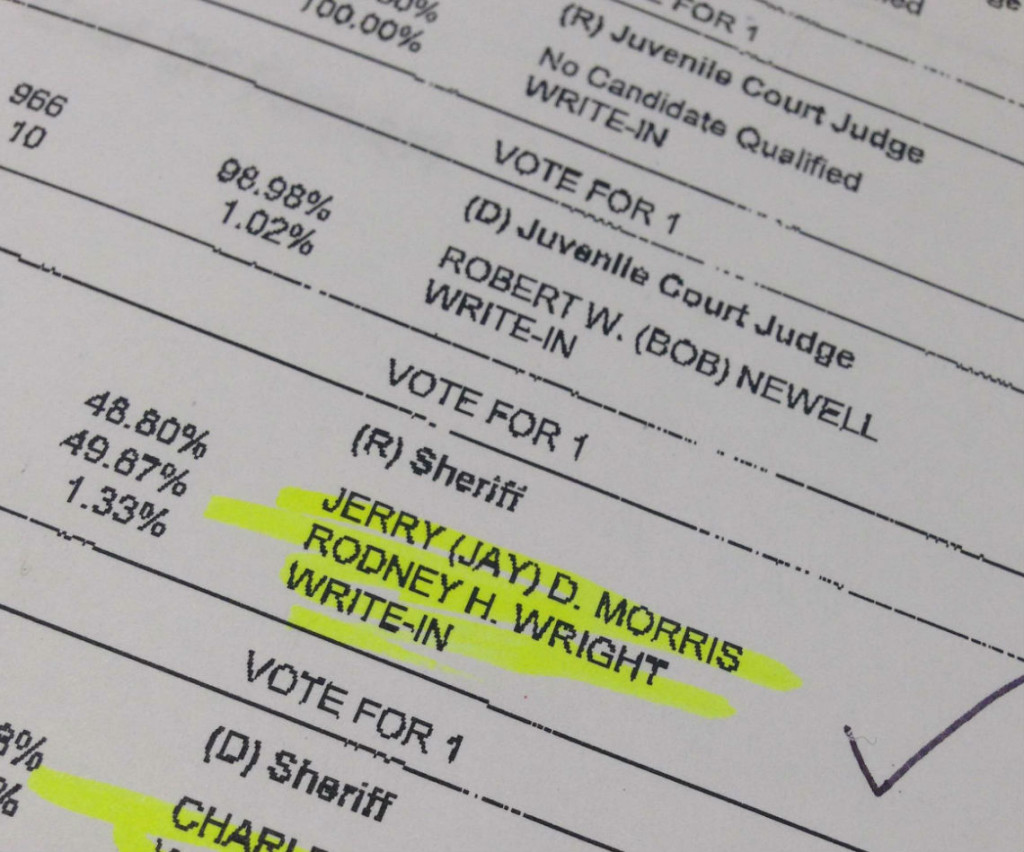 100.00%
FOR 1
(R) Juvenile Court Judge
No Candidate Qualified
WRITE-IN
VOTE FOR 1
966
10
98.98%
1.02%
(D) Juvenile Court Judge
ROBERT W. (BOB) NEWELL
WRITE-IN
VOTE FOR 1
(R) Sheriff
48.80%
JERRY (JAY) D. MORRIS
49.87%
RODNEY H. WRIGHT
1.33%
WRITE-IN
VOTE FOR 1
(D) Sheriff